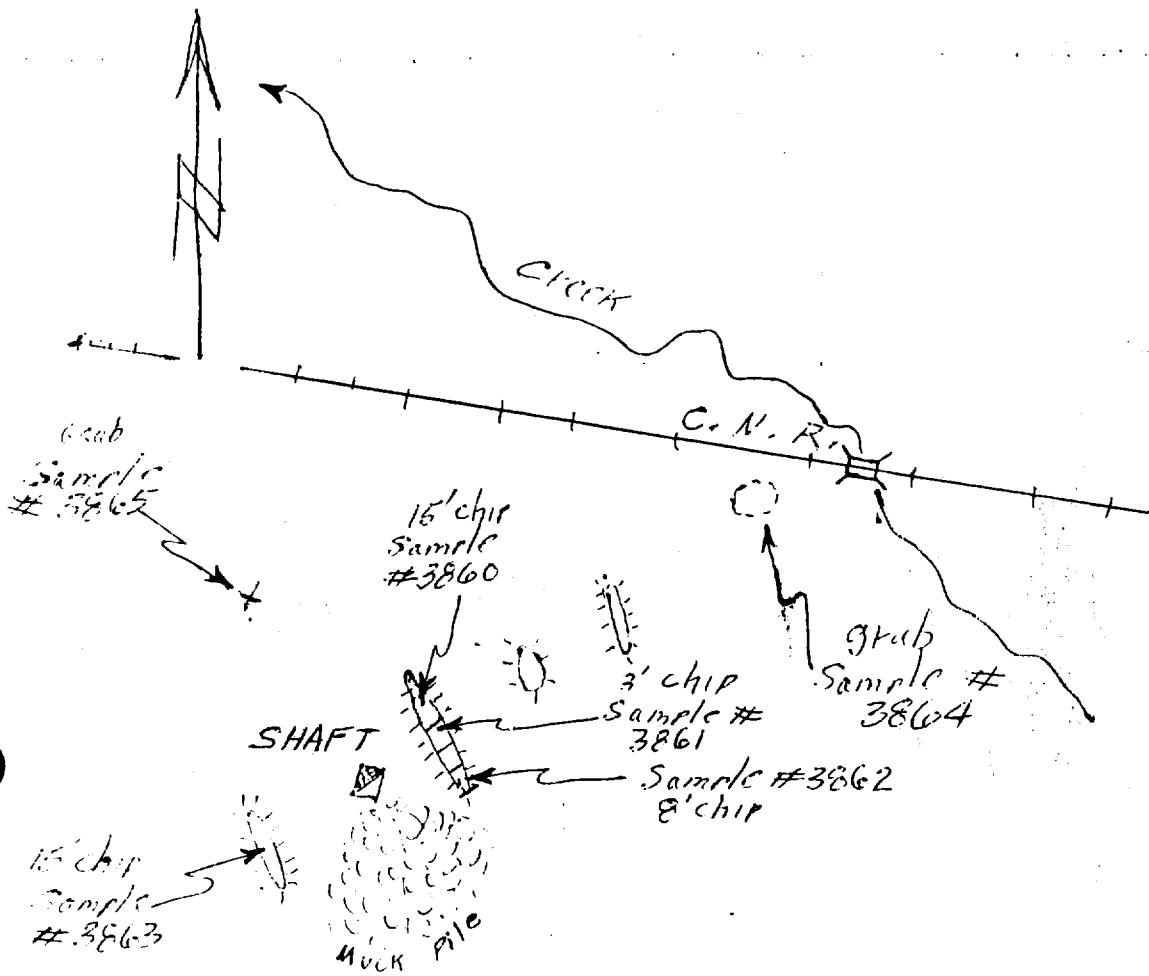 N
Creek
C. N. R.
Grab
Sample
# 3865
15' chip
Sample
#3860
grab
Sample #
3864
3' chip
Sample #
3861
SHAFT
Sample #3862
8' chip
15' chip
Sample
# 3863
Muck Pile